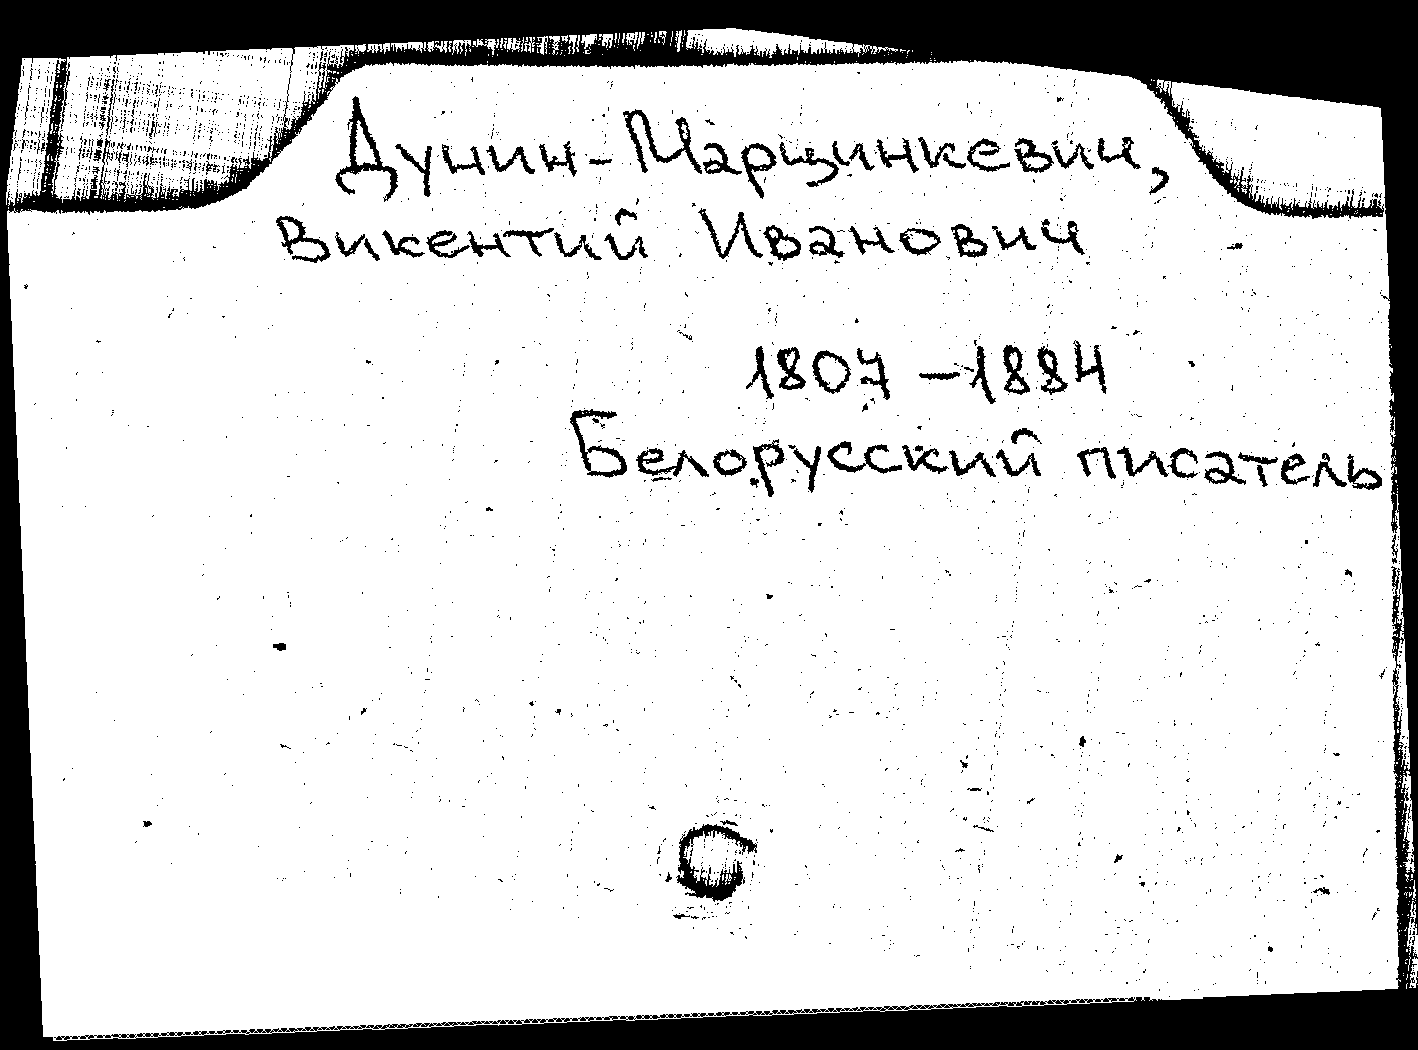 Дунин-Марцинкевич,
Викентий Иванович
1807-1884
Белорусский писатель